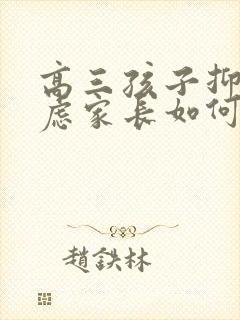 高三孩子抑
虑家长如何
趙鉄林